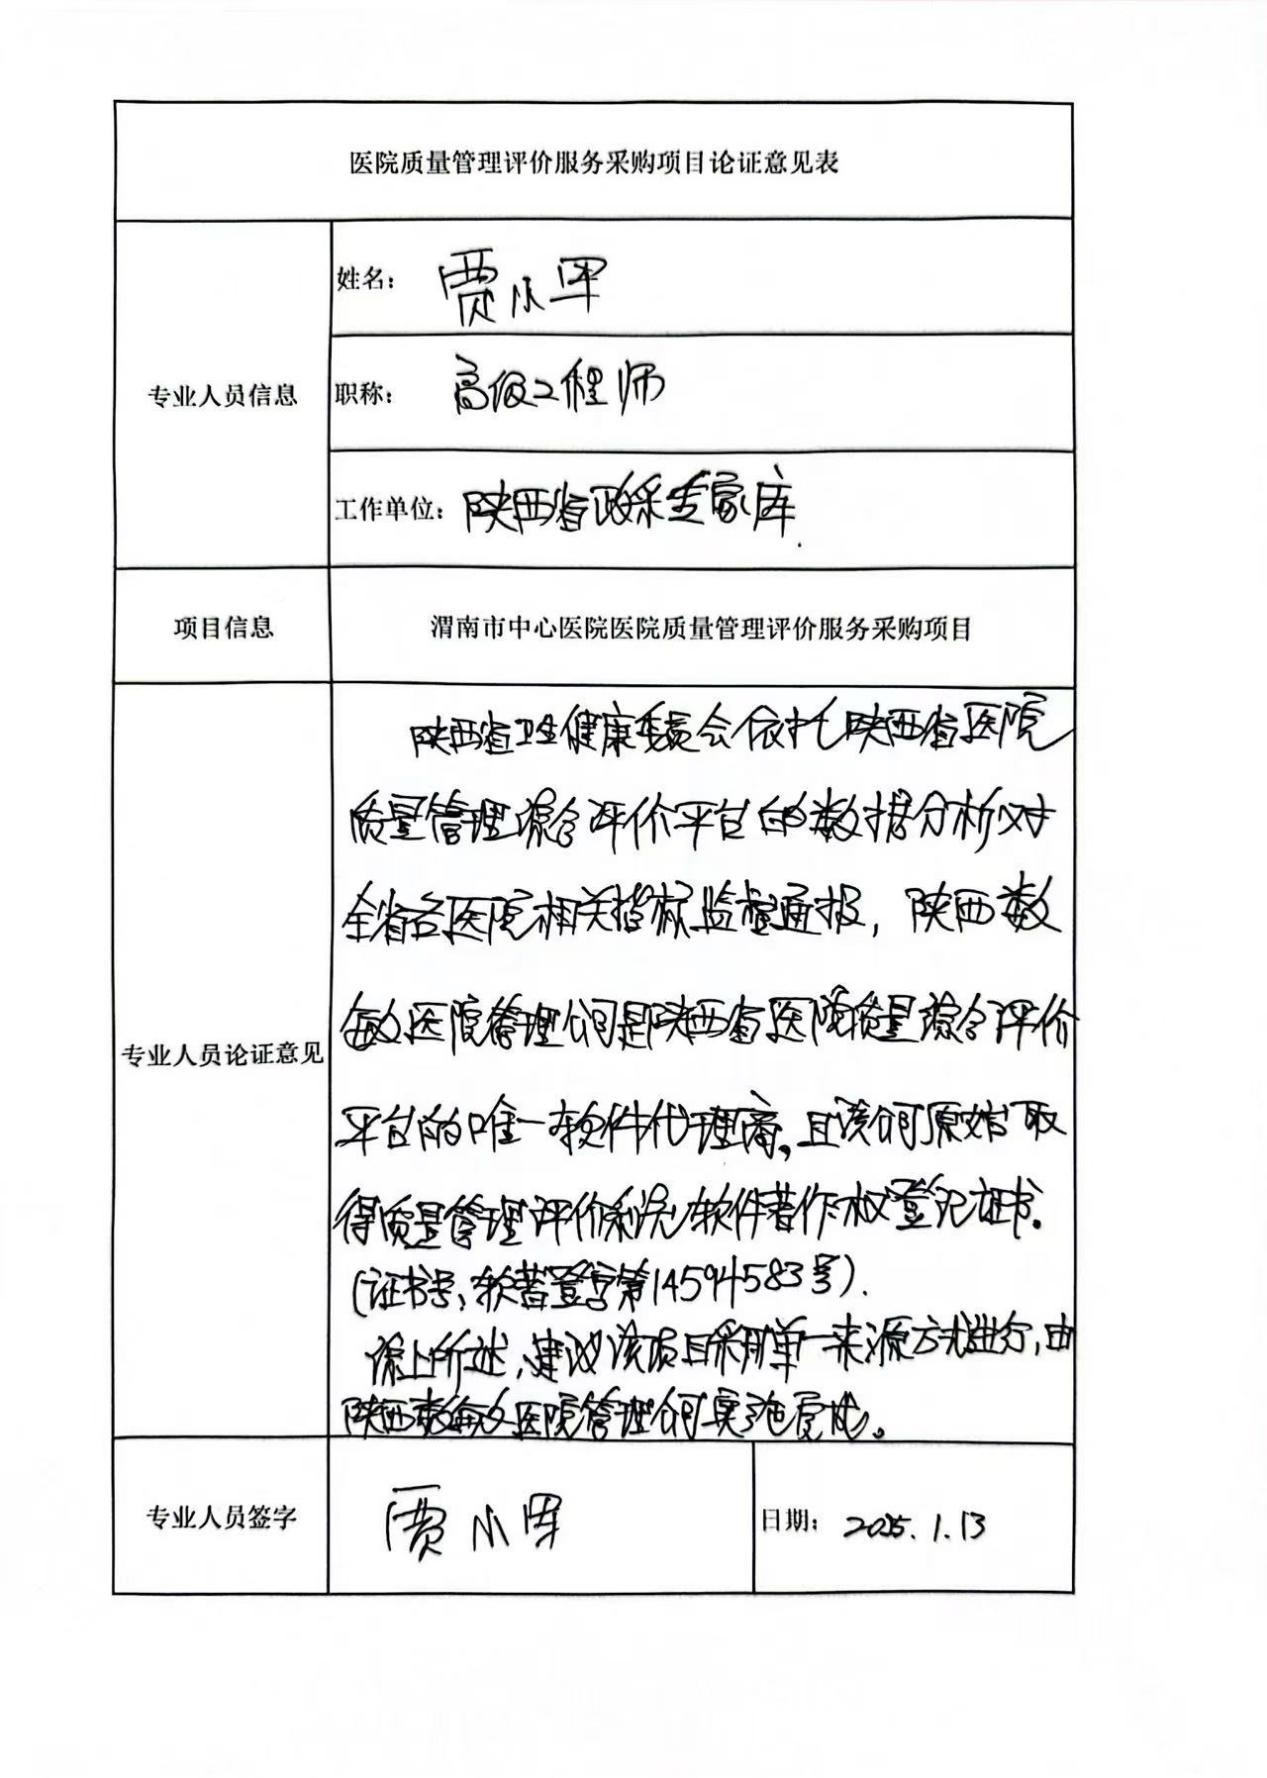 医院质量管理评价服务采购项目论证意见表
专业人员信息
姓名： 贾小军
职称： 高级工程师
工作单位： 陕西省政采专家库
项目信息
渭南市中心医院医院质量管理评价服务采购项目
专业人员论证意见
陕西省卫生健康委员会依托陕西省医院
质量管理综合评价平台的数据分析对
全省各医院相关指标监督通报，陕西数
每文医院管理公司是陕西省医院质量综合评价
平台的唯一软件代理商，且该公司原始取
得质量管理评价系统软件著作权登记证书。
（证书号：软著登字第14594583号）.
综上所述，建议该项目采用单一来源方式进行，由
陕西数每文医院管理公司实施
专业人员签字
贾小军
日期： 2025.1.13